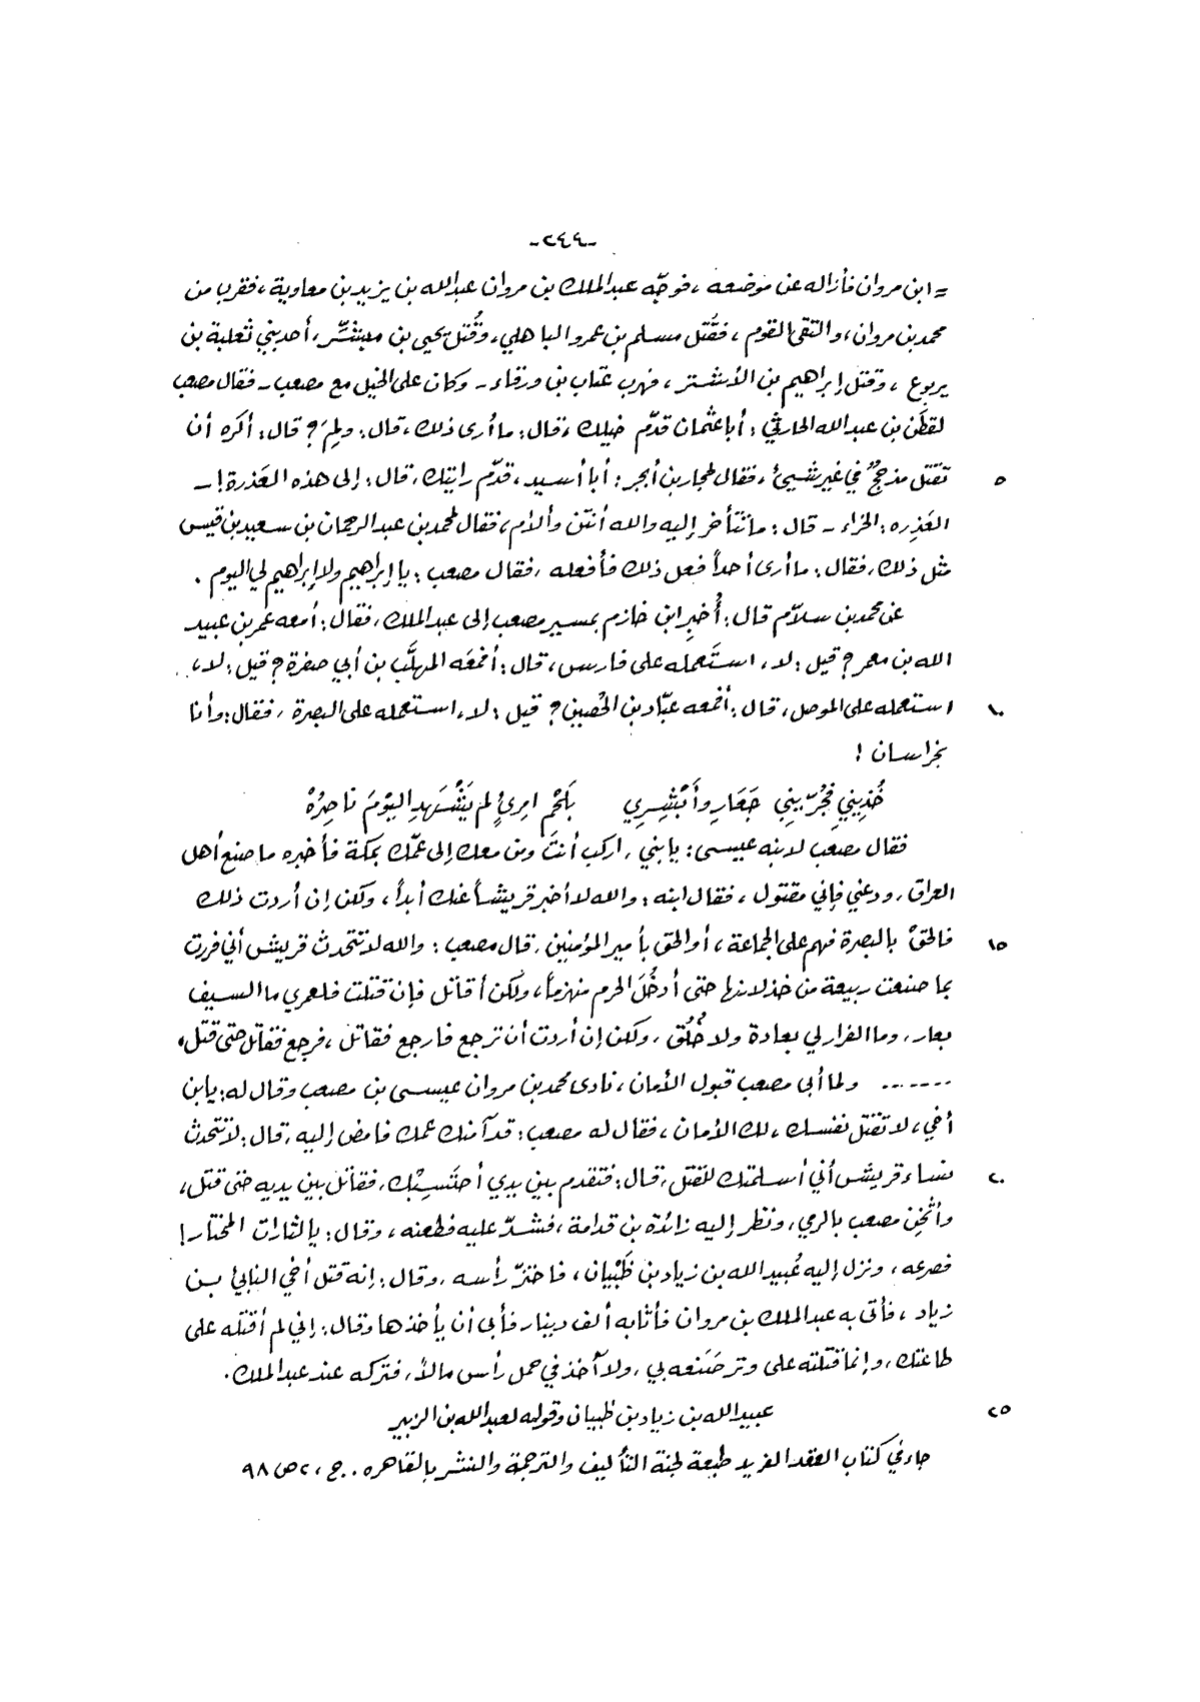 -٢٤٤-
= ابن مروان فأزاله عن موضعه، فوجّه عبدالملك بن مروان عبدالله بن يزيد بن معاوية، فقرب من
محمد بن مروان، والتقى القوم، فقُتل مسلم بن عمرو الباهلي، وقُتل يحيى بن مبشّر، أحد بني ثعلبة بن
يربوع، وقتل إبراهيم بن الأشتر، فهرب عتاب بن ورقاء - وكان على الخيل مع مصعب - فقال مصعب
لقطَن بن عبد الله الحارثي: أبا عثمان قدّم خيلك، قال: ما أرى ذلك، قال: ولِمَ؟ قال: أكره أن
٥ تقتل مذحجٌ في غير شيئ، فقال لحجار بن أبجر: أبا أسيد، قدّم رايتك، قال: إلى هذه العَذرة! -
العَذِره: الخراء - قال: ما تتأخر إليه والله أنتن وألأم، فقال لمحمد بن عبد الرحمان بن سعيد بن قيس
مثل ذلك، فقال: ما أرى أحداً فعل ذلك فأفعله، فقال مصعب: يا إبراهيم ولا إبراهيم لي اليوم.
عن محمد بن سلاّم قال: أُخبِر ابن خازم بمسير مصعب إلى عبد الملك، فقال: أمعه عمر بن عبيد
الله بن معمر؟ قيل: لا، استَعمله على فارس، قال: أفمعَه المهلَّب بن أبي صفرة؟ قيل: لا،
١٠ استعمله على الموصل، قال: أفمعه عبّاد بن الحُصين؟ قيل: لا، استعمله على البصرة، فقال: وأنا
بخراسان!
خُذِيني فَجُرّيني جَعَارِ وأَبْشِرِي بَلَحْمِ امرِئٍ لم يَشْهَدِ اليَوْمَ ناصِرُهْ
فقال مصعب لابنه عيسى: يا بني، اركب أنتَ ومن معك إلى عمّك بمكة فأخبره ما صنع أهل
العراق، ودعني فإني مقتول، فقال ابنه: والله لا أخبر قريشاً عنك أبداً، ولكن إن أردت ذلك
١٥ فالحقْ بالبصرة فهم على الجماعة، أو الحق بأمير المؤمنين، قال مصعب: والله لا تتحدث قريش أني فررت
بما صنعت ربيعة من خذلانها حتى أدخُلَ الحرم منهزماً، ولكن أقاتل فإن قتلت فلعمري ما السيف
بعار، وما الفرار لي بعادة ولا خُلُق، ولكن إن أردت أن ترجع فارجع فقاتل، فرجع فقاتل حتى قتل،
....... ولما أبى مصعب قبول الأمان، نادى محمد بن مروان عيسى بن مصعب وقال له: يابن
أخي، لا تقتل نفسك، لك الأمان، فقال له مصعب: قد آمنك عمك فامض إليه، قال: لا تتحدث
٢٠ نساء قريش أني أسلمتك للقتل، قال: فتقدم بين يدي أحتَسِبْك، فقاتل بين يديه حتى قتل،
وأُثْخِن مصعب بالرمي، ونظر إليه زائدة بن قدامة، فشدّ عليه فطعنه، وقال: يالثارات المختار!
فصرعه، ونزل إليه عُبيد الله بن زياد بن ظَبْيان، فاحتزّ رأسه، وقال: إنه قتل أخي النابئ بن
زياد، فأتى به عبد الملك بن مروان فأثابه ألف دينار فأبى أن يأخذها وقال: إني لم أقتله على
طاعتك، وإنما قتلته على وتر صَنَعه بي، ولا آخذ في حمل رأس مالاً، فتركه عند عبد الملك.
٢٥ عبيد الله بن زياد بن ظبيان وقوله لعبد الله بن الزبير
جاء في كتاب العقد الفريد طبعة لجنة التأليف والترجمة والنشر بالقاهره. ج، ٢ ص ٩٨